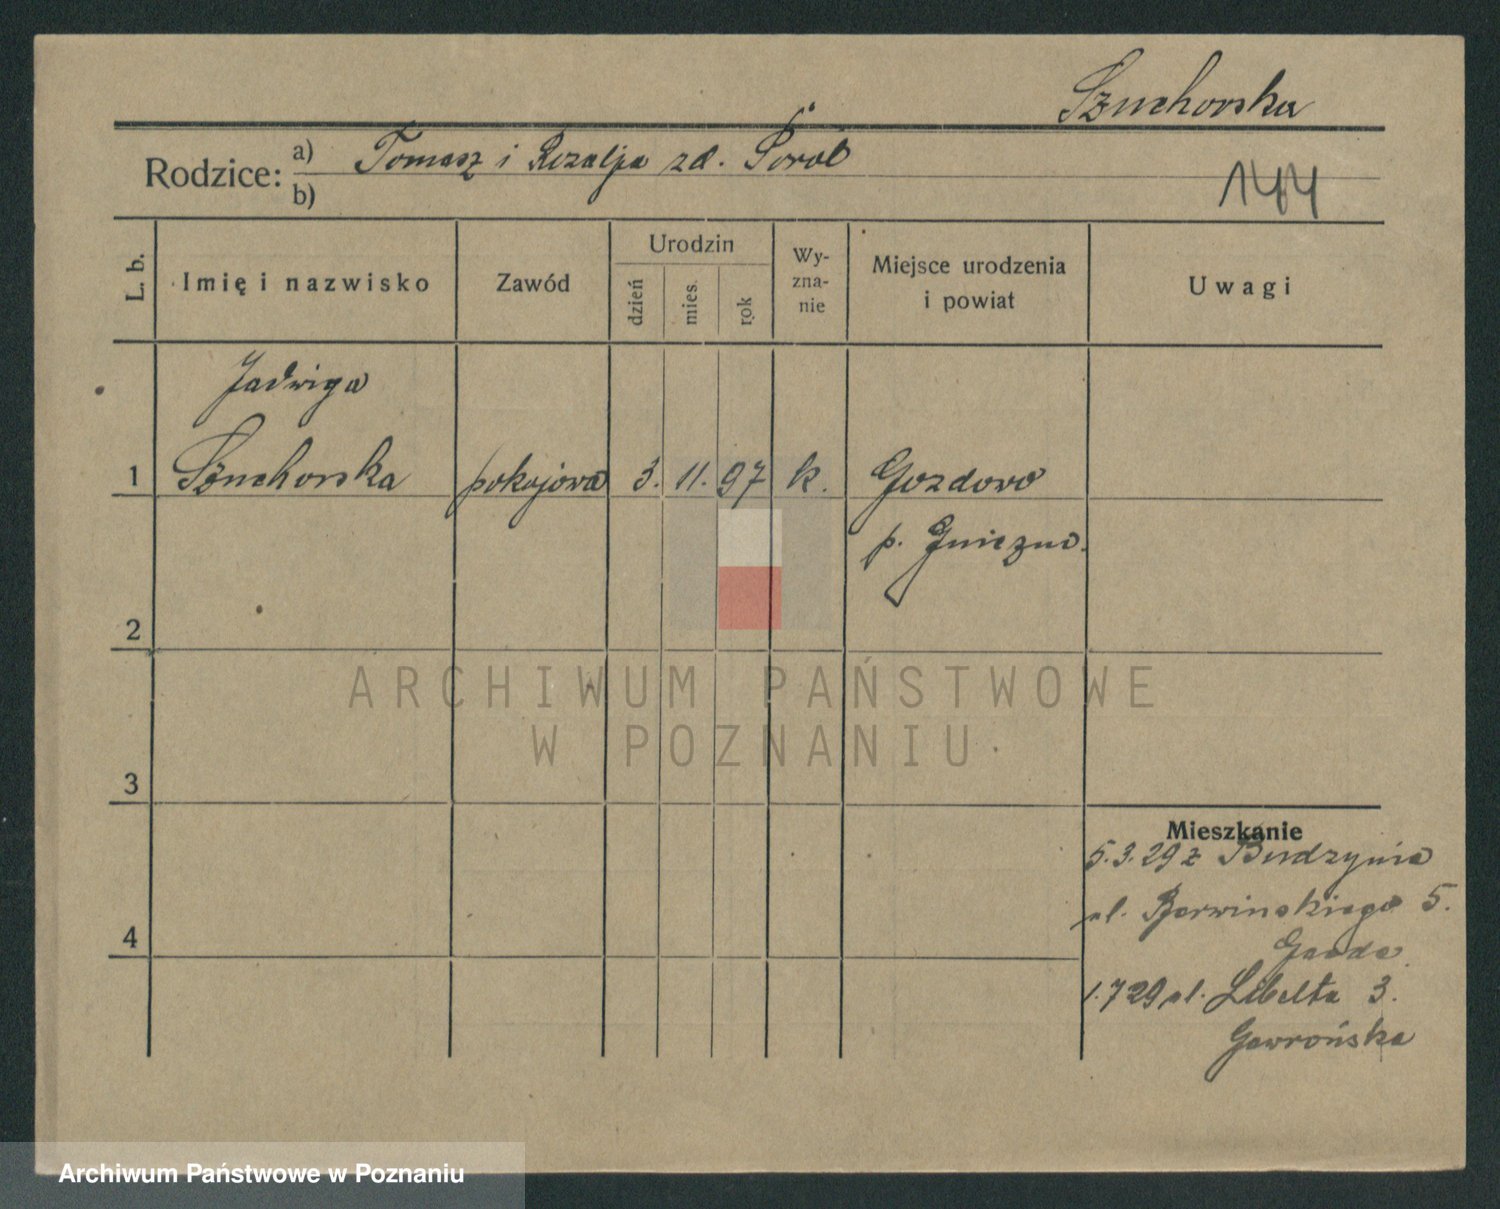 Szuchorska
Rodzice: a) Tomasz i Rozalja zd. Poroל
b)
144
L. b.
Imię i nazwisko
Zawód
Urodzin
dzień
mies.
rok
Wy-
zna-
nie
Miejsce urodzenia
i powiat
Uwagi
Jadwiga
1 Szuchorska pokojowa 3. 11. 97 k. Gozdowo
p. Gniezno.
2
3
4
Mieszkanie
5.3.29 z Budzynia
ul. Berwinskiego 5.
1.7 29 ul. Libelta 3.
Gawrońska
ARCHIWUM PAŃSTWOWE
W POZNANIU
Archiwum Państwowe w Poznaniu